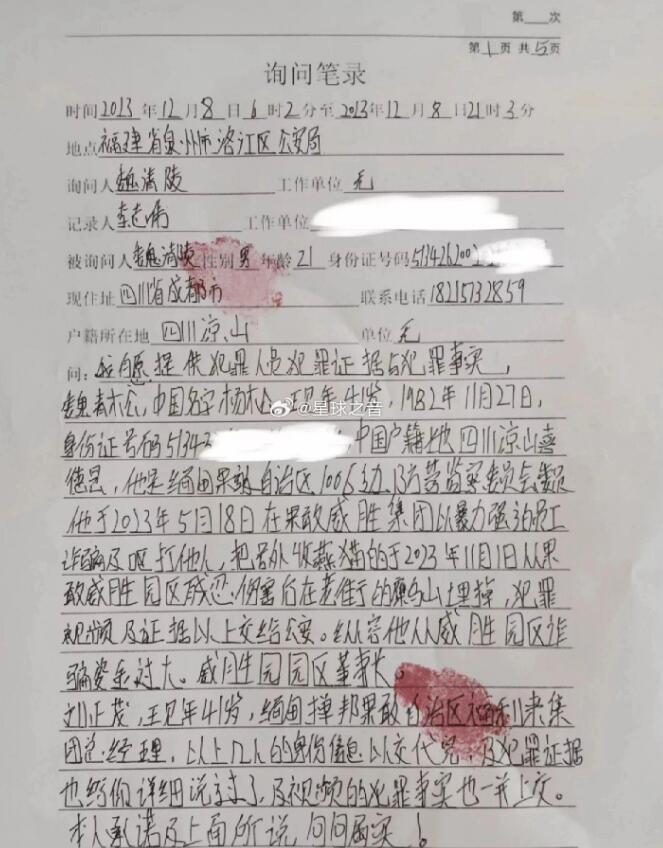 第___次
第1页 共5页
询问笔录
时间2013年12月8日6时2分至2013年12月8日21时3分
地点福建省泉州市洛江区公安局
询问人魏清陵 工作单位 无
记录人 工作单位
被询问人魏清陵性别男年龄21身份证号码513426200
现住址四川省成都市 联系电话18215732859
户籍所在地 四川凉山 单位 无
问:自愿提供犯罪人员犯罪证据与犯罪事实,
魏青松,中国名字杨松,现年41岁,1982年11月27日,
@星球之音
身份证号码5134 ,中国户籍地四川凉山喜
德县,他是缅甸果敢自治区1006边防营监察委员会委员
他于2023年5月18日在果敢威胜集团以暴力强迫员工
诈骗及殴打他人,把另外 的于2023年11月1日从果
敢威胜园区残忍伤害后在老街 山埋掉,犯罪
视频及证据以上交给公安。纵容他从威胜园区诈
骗资金过大。威胜园园区董事长。
刘正茂,现年41岁,缅甸掸邦果敢自治区福利来集
团总经理,以上几人的身份信息以交代完,及犯罪证据
也给你详细说过了,及视频的犯罪事实也一并上交。
本人承诺及上面所说 属实!